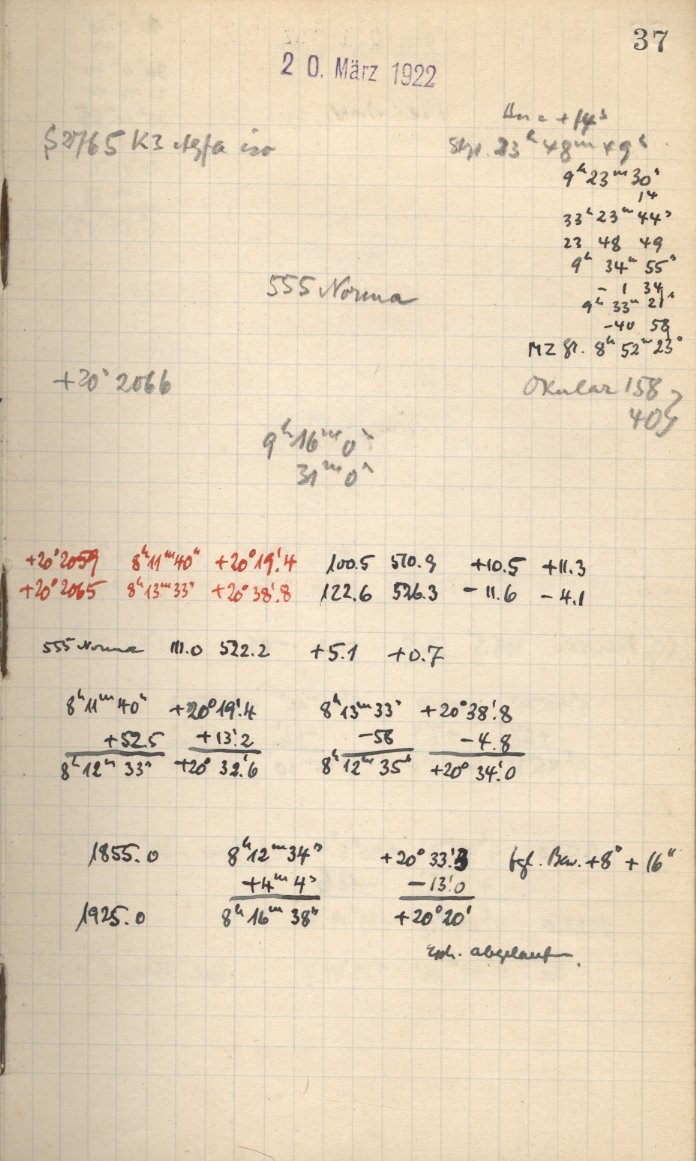 37
20. März 1922
Δu = +14ˢ
S 2765 K3 Agfa iso
Stzt. 23ʰ 48ᵐ 49ˢ
9ʰ 23ᵐ 30ˢ
14
33ʰ 23ᵐ 44ˢ
23 48 49
9ʰ 34ᵐ 55ˢ
- 1 34
9ʰ 33ᵐ 21ˢ
-40 58
MZ Gr. 8ʰ 52ᵐ 23ˢ
555 Norma
+20° 2066
Okular 158
40
9ʰ 16ᵐ 0ˢ
31ᵐ 0ˢ
+20° 2059 8ʰ 11ᵐ 40ˢ +20° 19'.4 100.5 510.9 +10.5 +11.3
+20° 2065 8ʰ 13ᵐ 33ˢ +20° 38'.8 122.6 526.3 - 11.6 - 4.1
555 Norma 111.0 522.2 +5.1 +0.7
8ʰ 11ᵐ 40ˢ +20° 19'.4 8ʰ 13ᵐ 33ˢ +20° 38'.8
+52.5 +13'.2 -58 -4.8
8ʰ 12ᵐ 33ˢ +20° 32'.6 8ʰ 12ᵐ 35ˢ +20° 34'.0
1855.0 8ʰ 12ᵐ 34ˢ +20° 33'.3 tgl. Bew. +8ˢ + 16"
+4ᵐ 4ˢ -13'.0
1925.0 8ʰ 16ᵐ 38ˢ +20° 20'
abgelaufen.